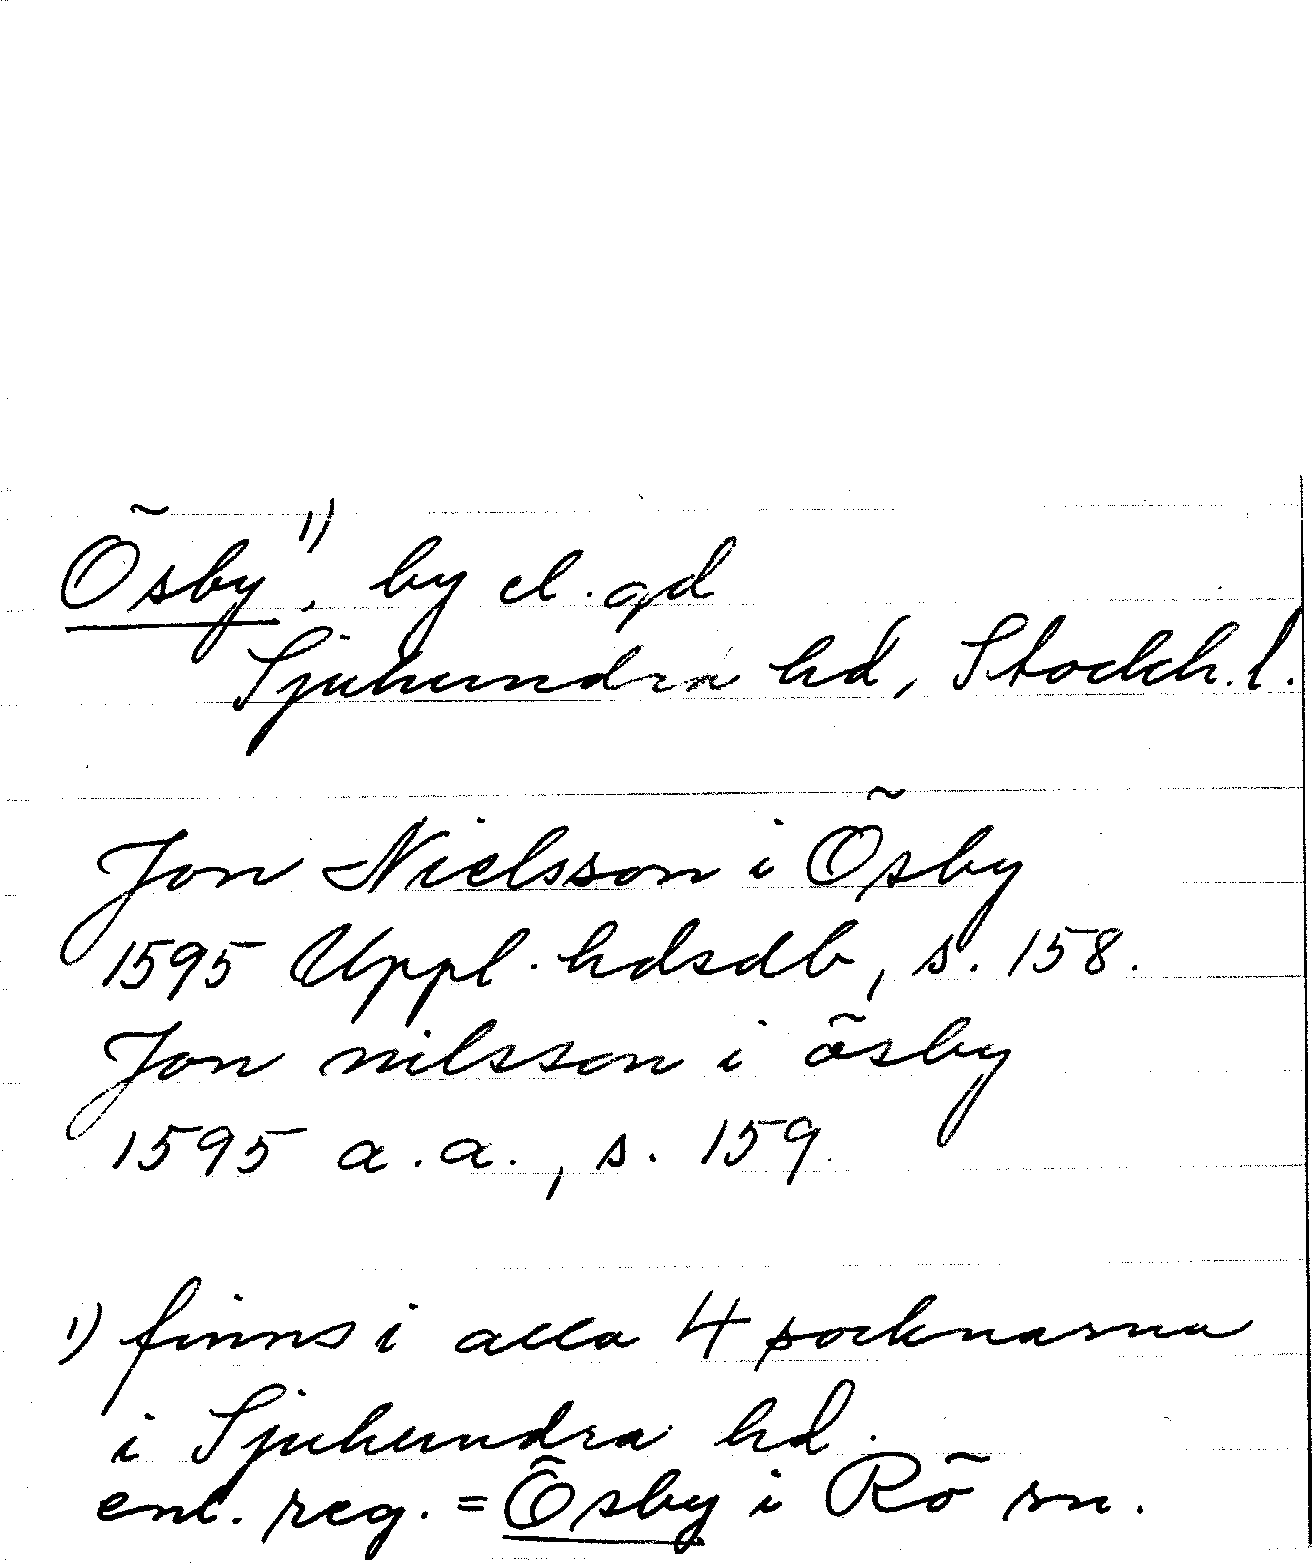 Ösby¹⁾, by el. gd
Sjuhundra hd, Stockh. l.
Jon Nielsson i Ösby
1595 Uppl. hdsdb, s. 158.
Jon nilsson i ösby
1595 a.a., s. 159
1) finns i alla 4 socknarna
i Sjuhundra hd.
enl. reg. = Ösby i Rö sn.